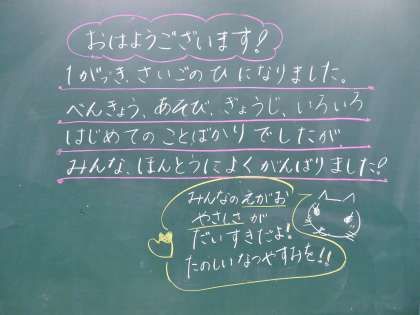 おはようございます!
1がっき、さいごのひになりました。
べんきょう、あそび、ぎょうじ、いろいろ
はじめてのことばかりでしたが
みんな、ほんとうによくがんばりました!
みんなのえがお
やさしさが
だいすきだよ!
たのしいなつやすみを!!